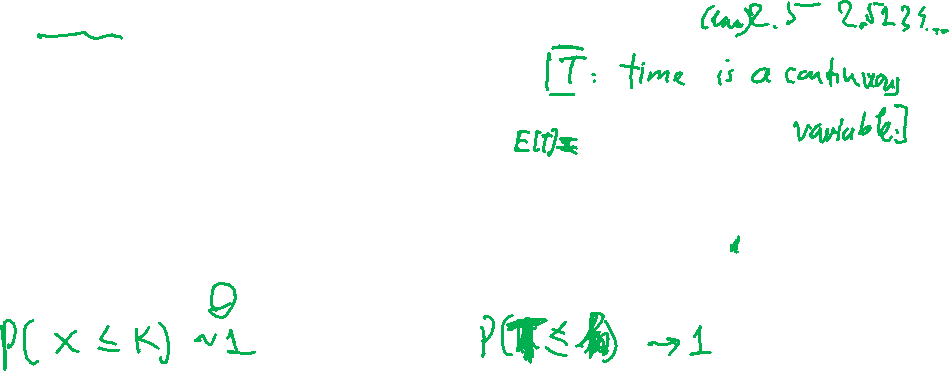 2.5 2.5234...
[T: time is a continuous
variable.]
E[T]=
P( X ≤ K) ~ 1
P(T ≤ ) → 1